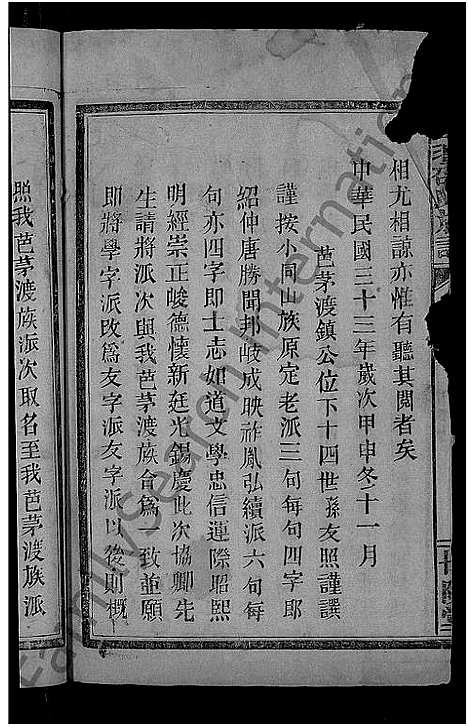 相尤相諒亦惟有聽其閱者矣
中華民國三十三年歲次甲申冬十一月
芭茅渡鎮公位下十四世孫友照謹譔
謹按小同山族原定老派三句每句四字即
紹仲唐勝開邦岐成映祚胤弘續派六句每
句亦四字即士志如道文學忠信運際昭熙
明經崇正峻德懷新廷光錫慶此次協卿先
生請將派次與我芭茅渡族會爲一致並願
即將學字派改爲友字派友字派以後則概
照我芭茅渡族派次取名至我芭茅渡族派
FamilySearch International